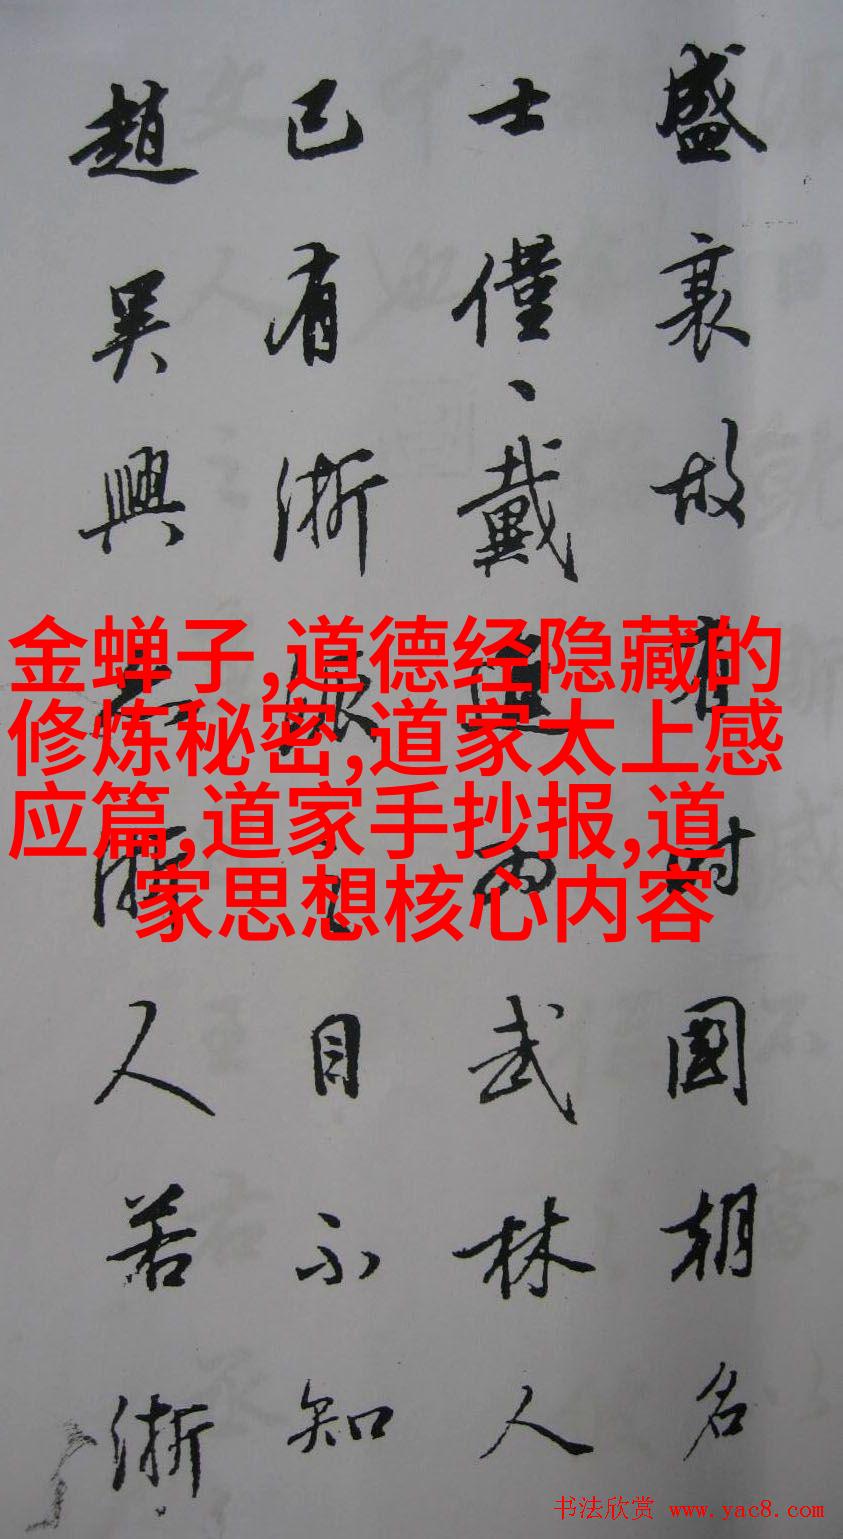 盛衰故有時國朝名
士僅、戴進武林人
已有浙派之目不知
趙吳興亦浙人若浙
金蝉子,道德经隐藏的
修炼秘密,道家太上感
应篇,道家手抄报,道
家思想核心内容
书法欣赏 www.yac8.com